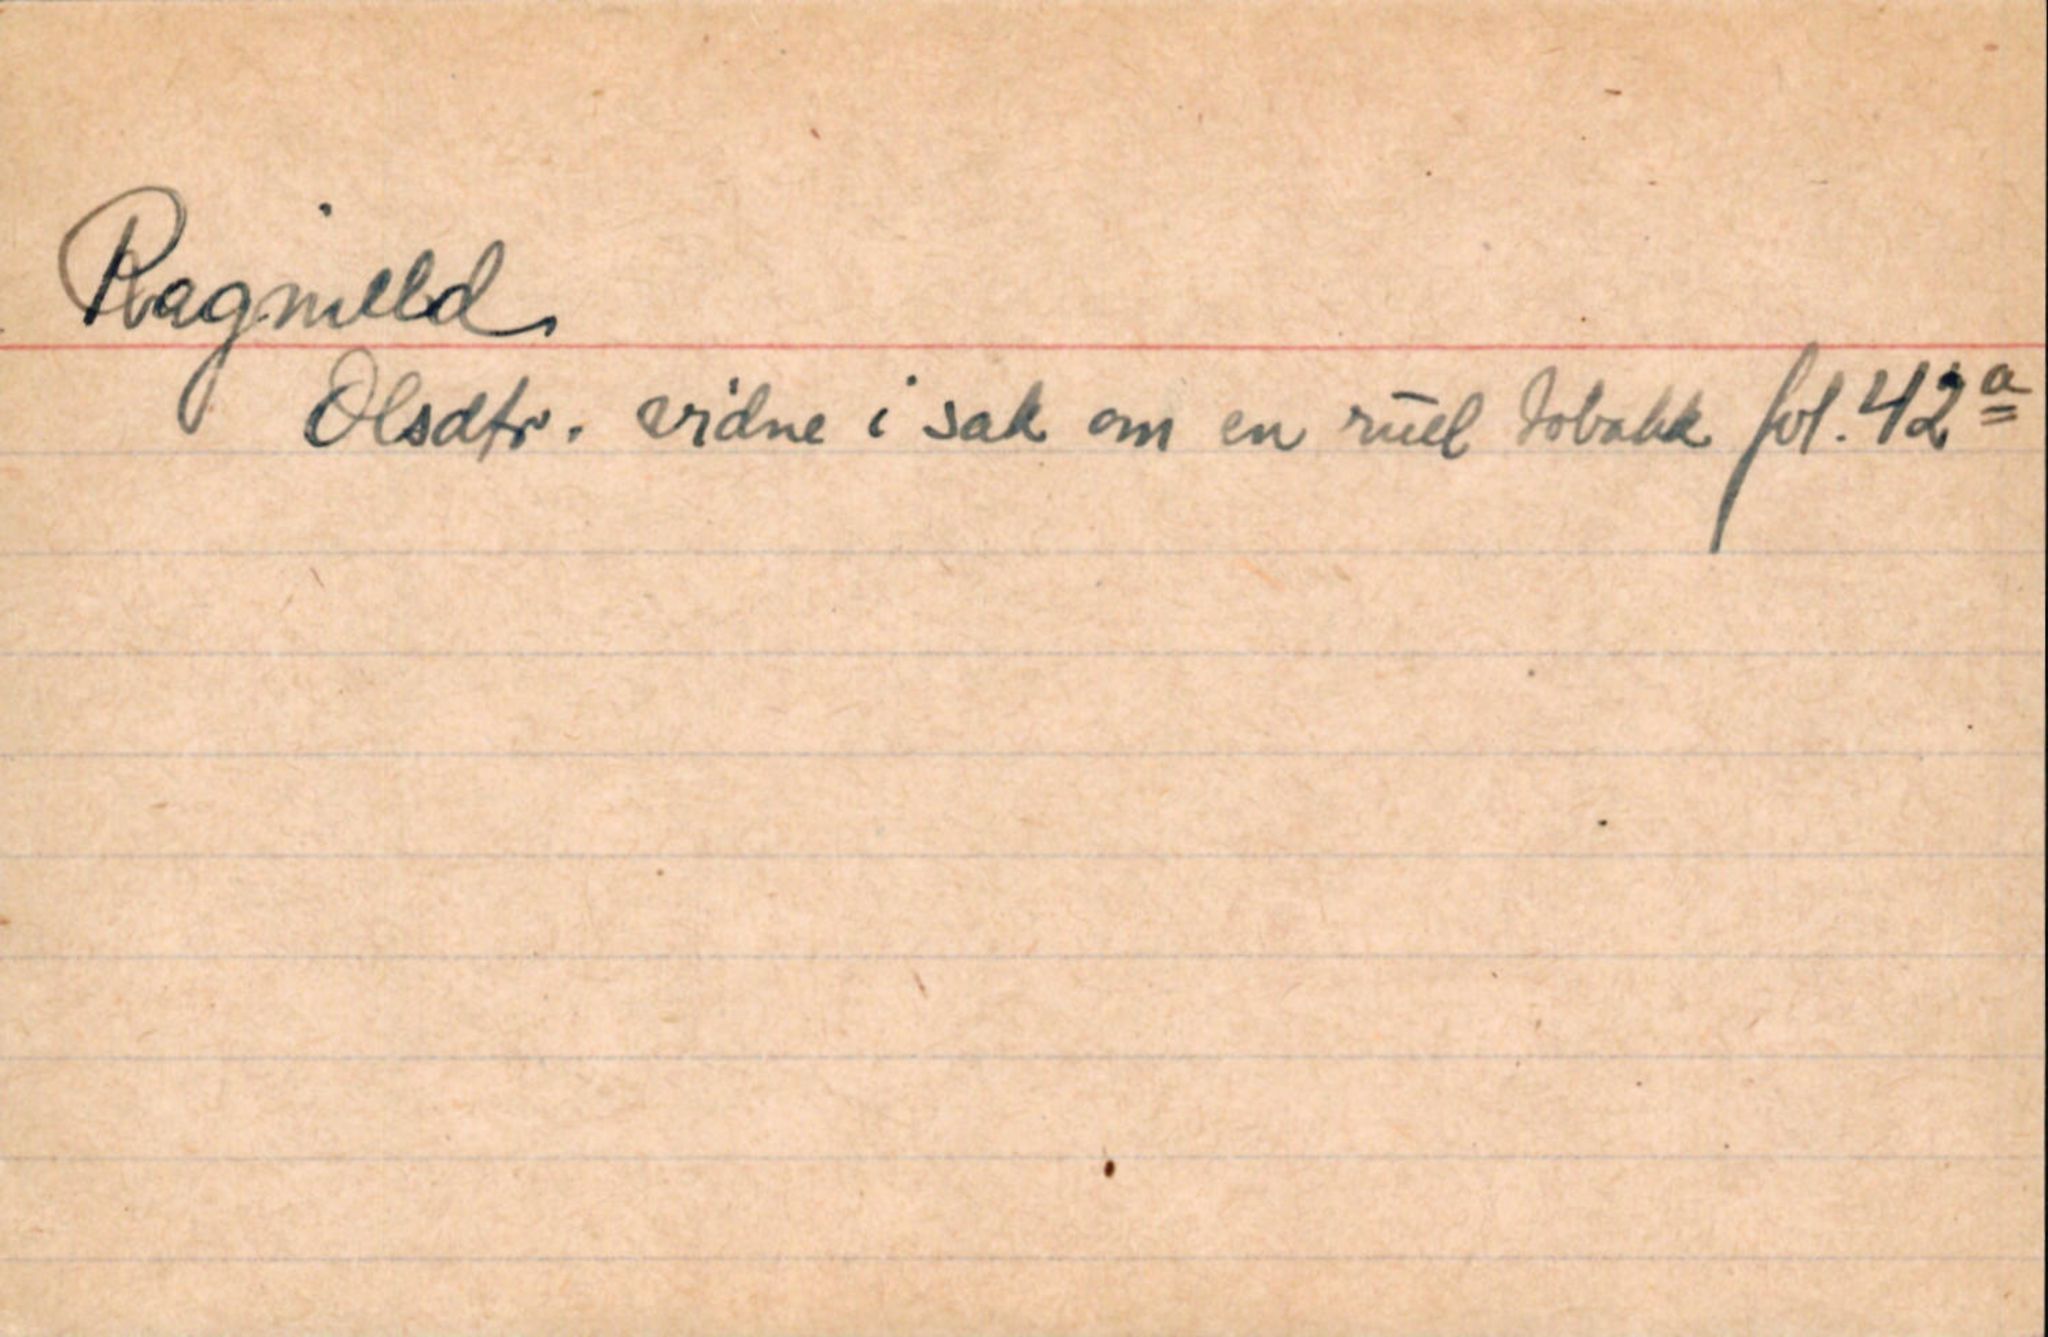 Ragnilld
Olsdtr. vidne i sak om en rull tobakk fol. 42ª